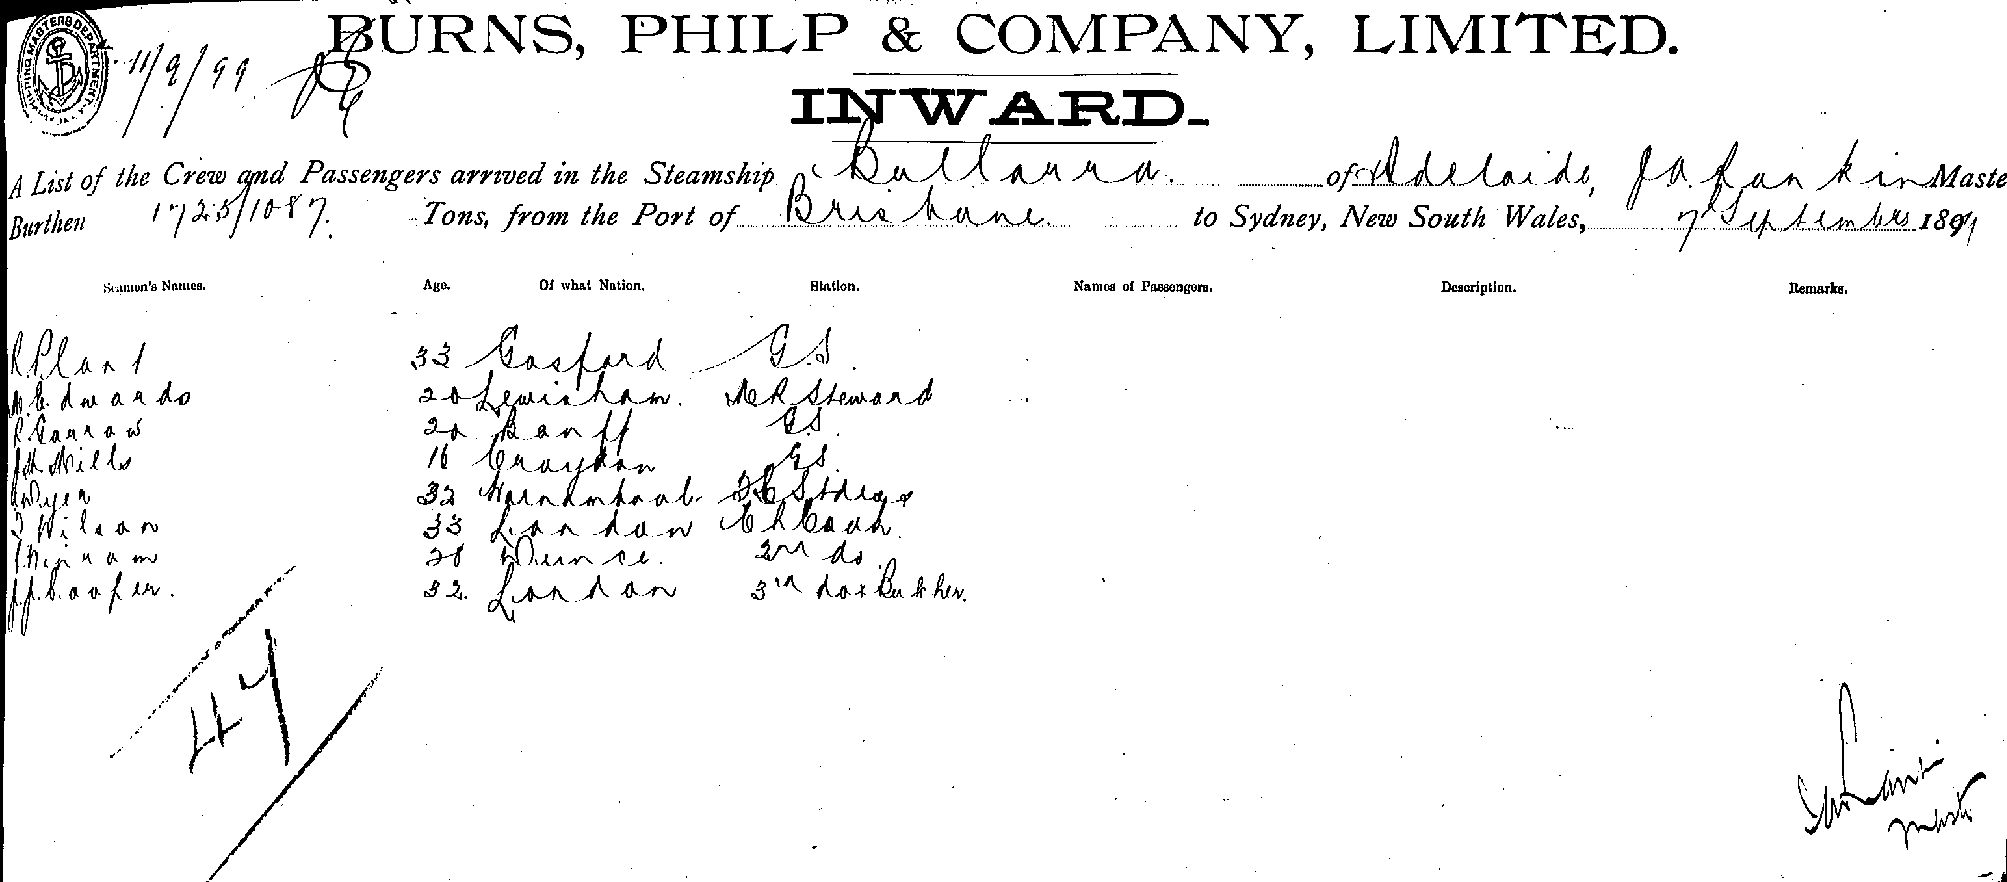 SHIPPING MASTERS DEPARTMENT
11/9/99
BURNS, PHILP & COMPANY, LIMITED.
INWARD.
A List of the Crew and Passengers arrived in the Steamship Bullarra. of Adelaide, J A Rankin Maste
Burthen 1725/1087. Tons, from the Port of Brisbane. to Sydney, New South Wales, 7 Septembrs 1899
Seamen's Names. Age. Of what Nation. Station. Names of Passengers. Description. Remarks.
R. Plant 33 Gosford G.S.
Edwards 20 Lewisham. Steward
Garrow 20 Banff G.S.
Mills 16 Croydon G.S.
Wyer 32
Wilson 33 London Cook.
28 2nd do
J. J. Cooper. 32. London 3rd do & Butcher.
47
Master